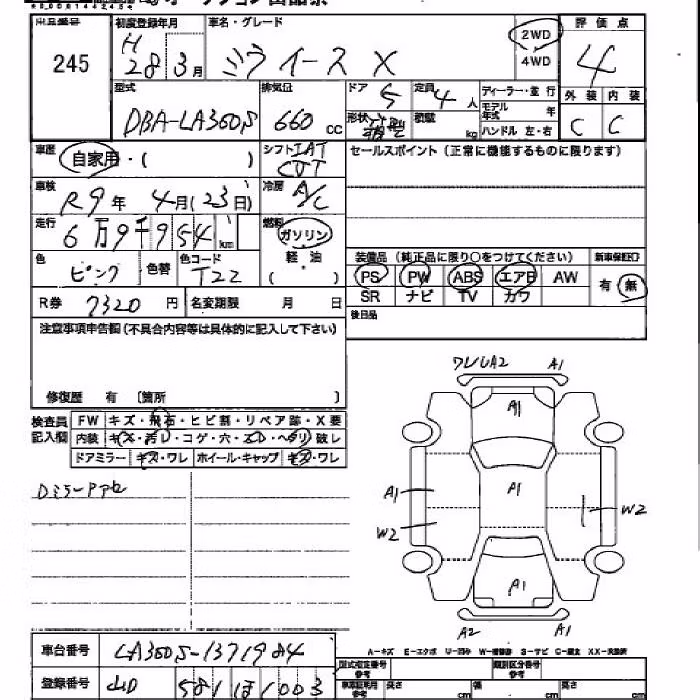 出品番号 245
初度登録年月 H 28年 3月
車名・グレード ミライース X
2WD 4WD
評価点 4
型式 DBA-LA300S
排気量 660 cc
ドア 5
定員 4 人
形状
積載 kg
ディーラー・並行
モデル年式 年
ハンドル 左・右
外装 C
内装 C
車歴 自家用・( )
シフト IAT CVT
セールスポイント (正常に機能するものに限ります)
車検 R9年 4月(23日)
冷房 A/C
走行 6万9千954 km
燃料 ガソリン 軽油 ( )
色 ピンク
色替
色コード T22
装備品 (純正品に限り○をつけてください)
新車保証書 有 無
PS PW ABS エアB AW
SR ナビ TV カワ
R券 7320 円
名変期限 月 日
後日品
注意事項申告欄 (不具合内容等は具体的に記入して下さい)
修復歴 有 〔箇所 〕
検査員記入欄
FW キズ・飛石・ヒビ割・リペア跡・X要
内装 キズ・汚レ・コゲ・穴・スレ・ヘタリ・破レ
ドアミラー キズ・ワレ ホイール・キャップ キズ・ワレ
ワレU A2 A1
A1
A1
A1 W2
W2
A1
A2 A1
車台番号 LA300S-1371984
A-キズ E-エクボ U-凹み W-補修跡 S-サビ C-腐食 XX-交換済
型式指定番号 参考
類別区分番号 参考
登録番号 581 ほ1003
長さ cm 幅 cm 高さ cm